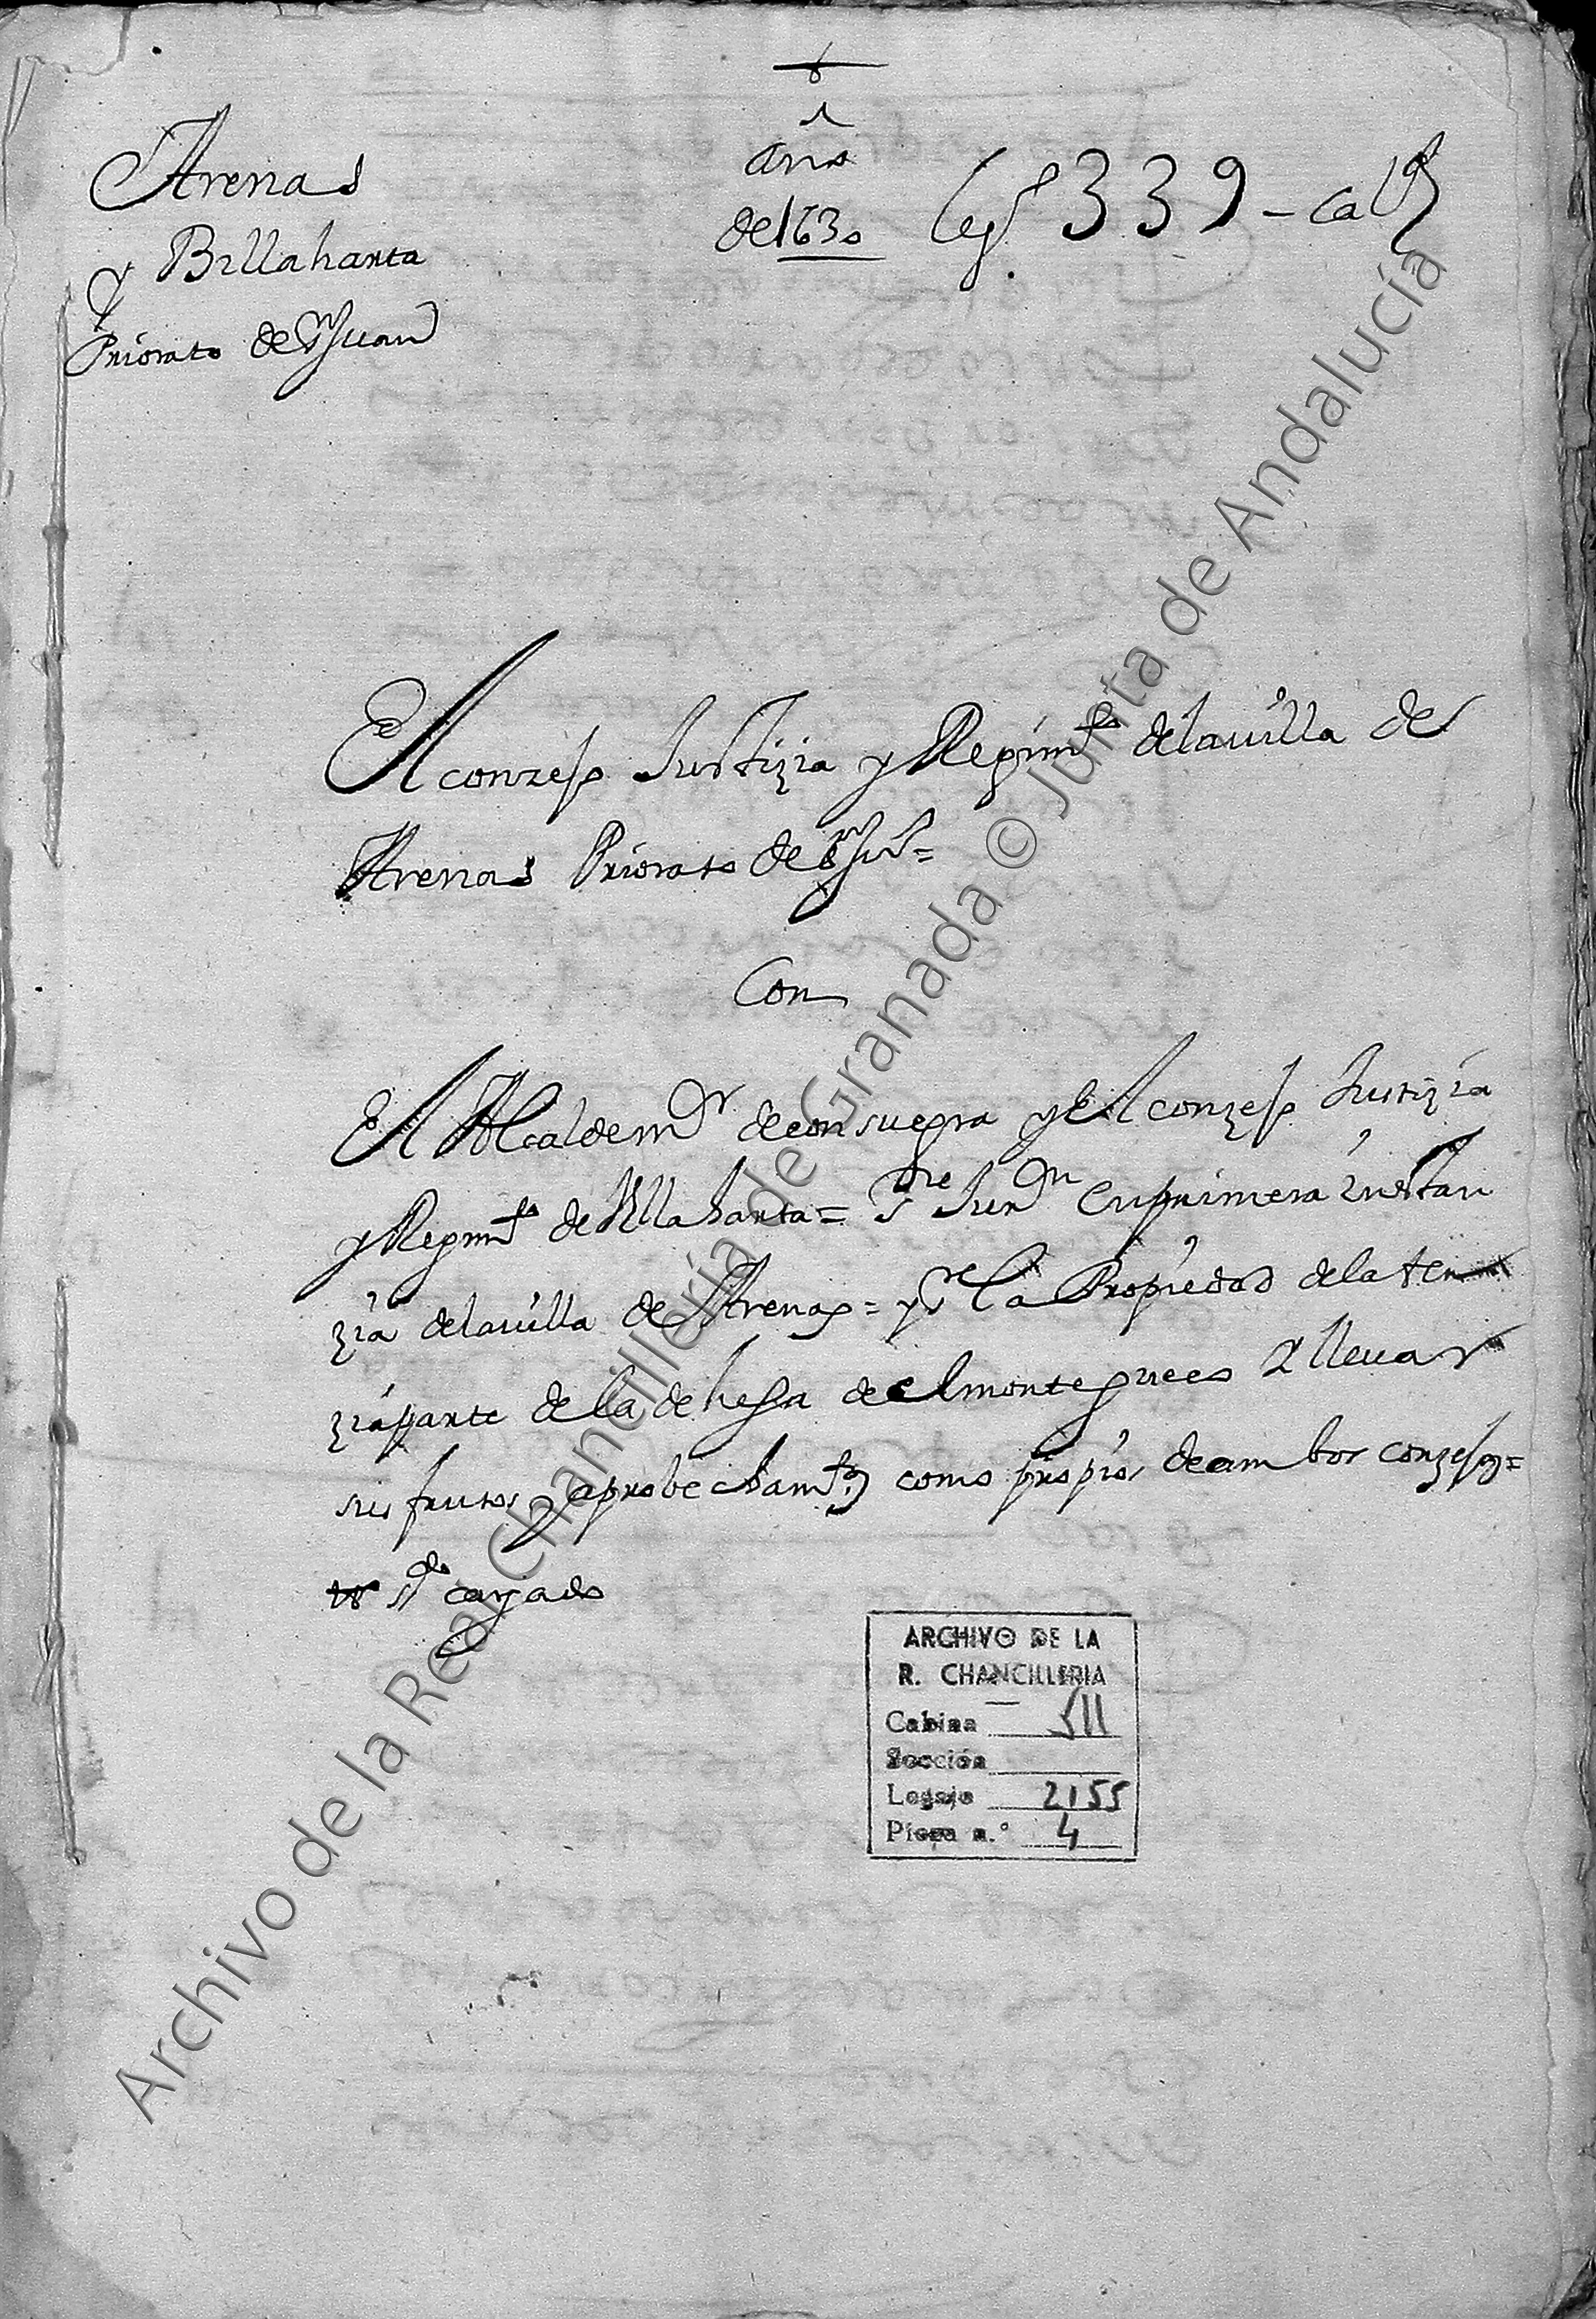 Arenas
y Billaharta
Priorato de Sn Juan
año
de 1630
Legº 339 - ca
El conzejo Justizia y Regimto de la uilla de
Arenas Priorato de Sn Juº =
Con
El Alcalde mor de consuegra y El conzejo Justizia
y Regimto de Villaharta = Sre Jurdon en primera instan
zia de la uilla de Arenas = y sre la Propiedad de la terz
zia parte de la dehesa de el monte Y lleuar
sus frutos y aprobechamtos como propios de ambos conzejos =
Sº cayado
ARCHIVO DE LA
R. CHANCILLERIA
Cabina 511
Sección
Legajo 2155
Pieza n.º 4
Archivo de la Real Chancillería de Granada © Junta de Andalucía